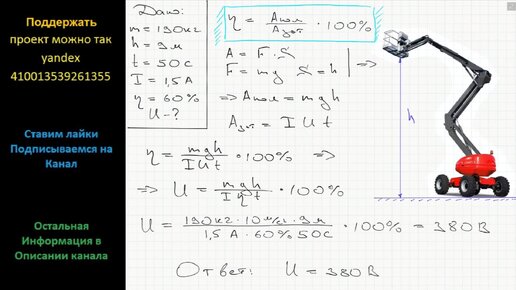 Поддержать
проект можно так
yandex
410013539261355
Ставим лайки
Подписываемся на
Канал
Остальная
Информация в
Описании канала
Дано:
m = 190кг
h = 9м
t = 50с
I = 1,5А
η = 60%
U - ?
η = Aпол / Aзат · 100%
A = F · S
F = mg S = h
=> Aпол = mgh
Aзат = I U t
η = mgh / IUt · 100% =>
=> U = mgh / Iηt · 100%
U = 190кг · 10 м/с² · 9м / 1,5А · 60% 50с · 100% = 380В
Ответ: U = 380В
h